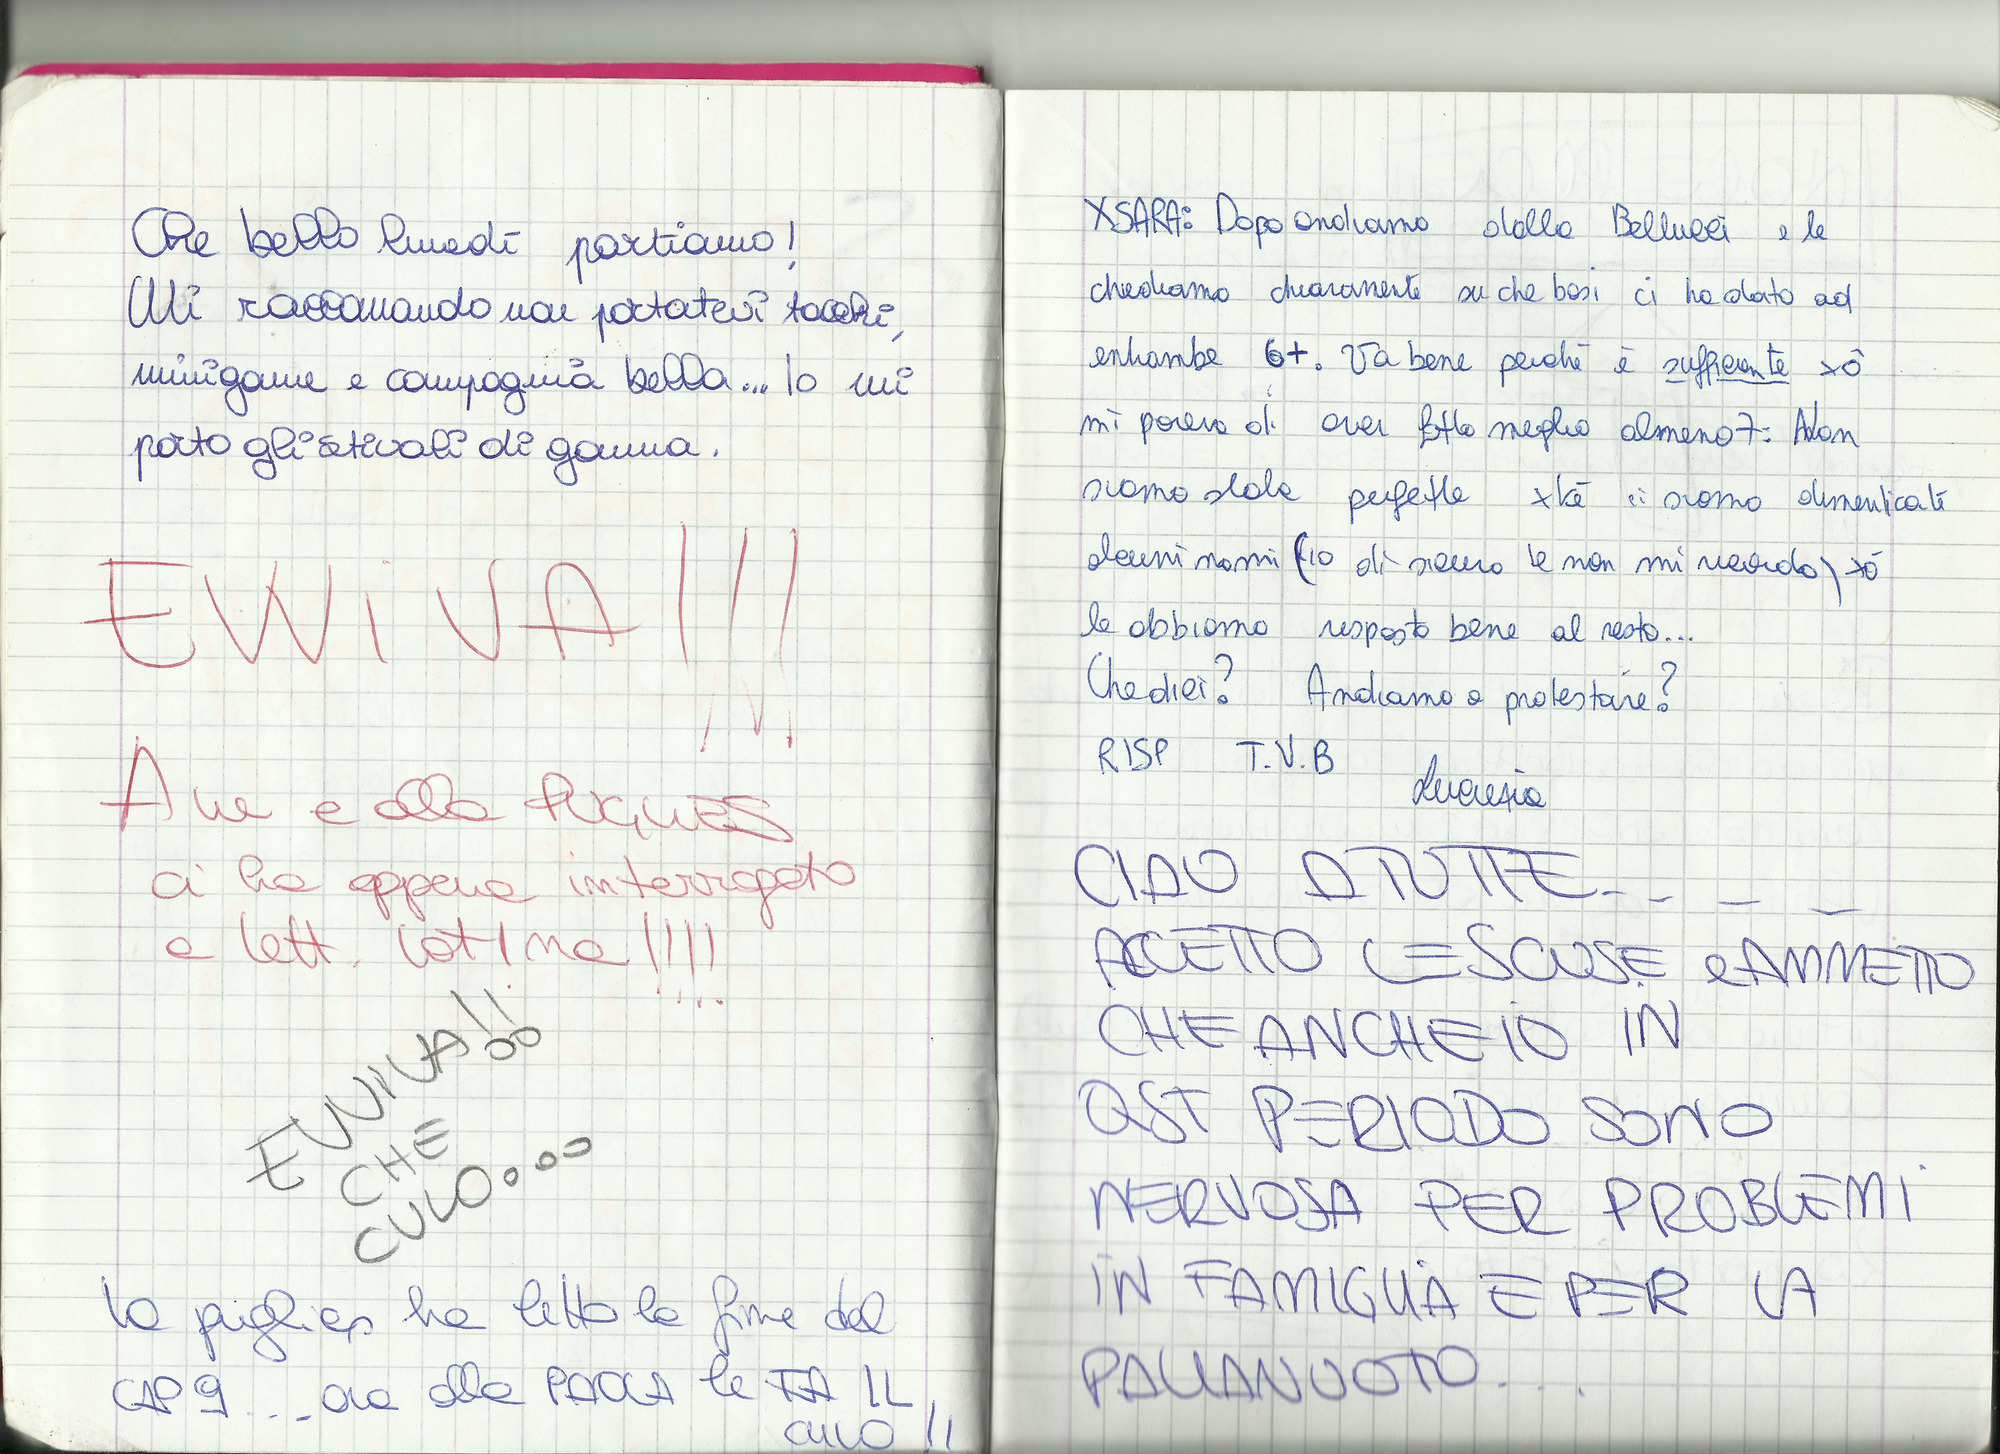 Che bello lunedì partiamo!
Mi raccomando non portatevi tacchi,
minigonne e compagnia bella... Io mi
porto gli stivali di gomma.
EWIVA!!!
A me e alla PUGLIES
ci ha appena interrogato
a lett. latina!!!!
EVVIVA!!
CHE
CULO...
la puglies ha letto la fine del
CAP 9... ora alla PAOLA le FA IL
CULO!!
XSARA: Dopo andiamo dalla Bellucci e le
chiediamo chiaramente su che basi ci ha dato ad
entrambe 6+. Va bene perché è sufficiente xò
mi pareva di aver fatto meglio almeno 7: Non
siamo state perfette xké ci siamo dimenticate
alcuni nomi (io di sicuro le non mi ricordo) xò
le abbiamo risposto bene al resto...
Che dici? Andiamo a protestare?
RISP T.V.B
Lucrezia
CIAO A TUTTE....
ACCETTO LE SCUSE e AMMETTO
CHE ANCHE IO IN
QST PERIODO SONO
NERVOSA PER PROBLEMI
IN FAMIGLIA E PER LA
PALLANUOTO....